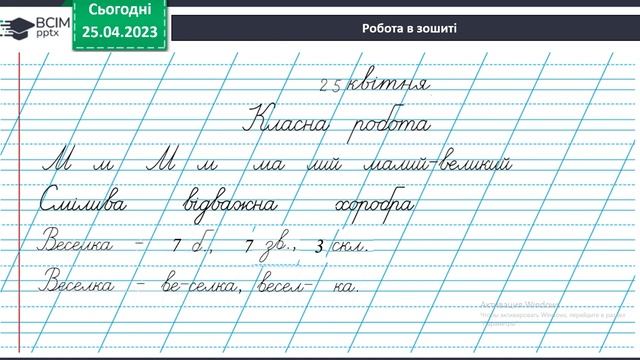 ВСІМ
pptx
Сьогодні
25.04.2023
Робота в зошиті
25 квітня
Класна робота
М м М м ма лий малий-великий
Смілива відважна хоробра
Веселка - 7 б., 7 зв., 3 скл.
Веселка - ве-селка, весел- ка.
Активация Windows
Чтобы активировать Windows, перейдите в раздел